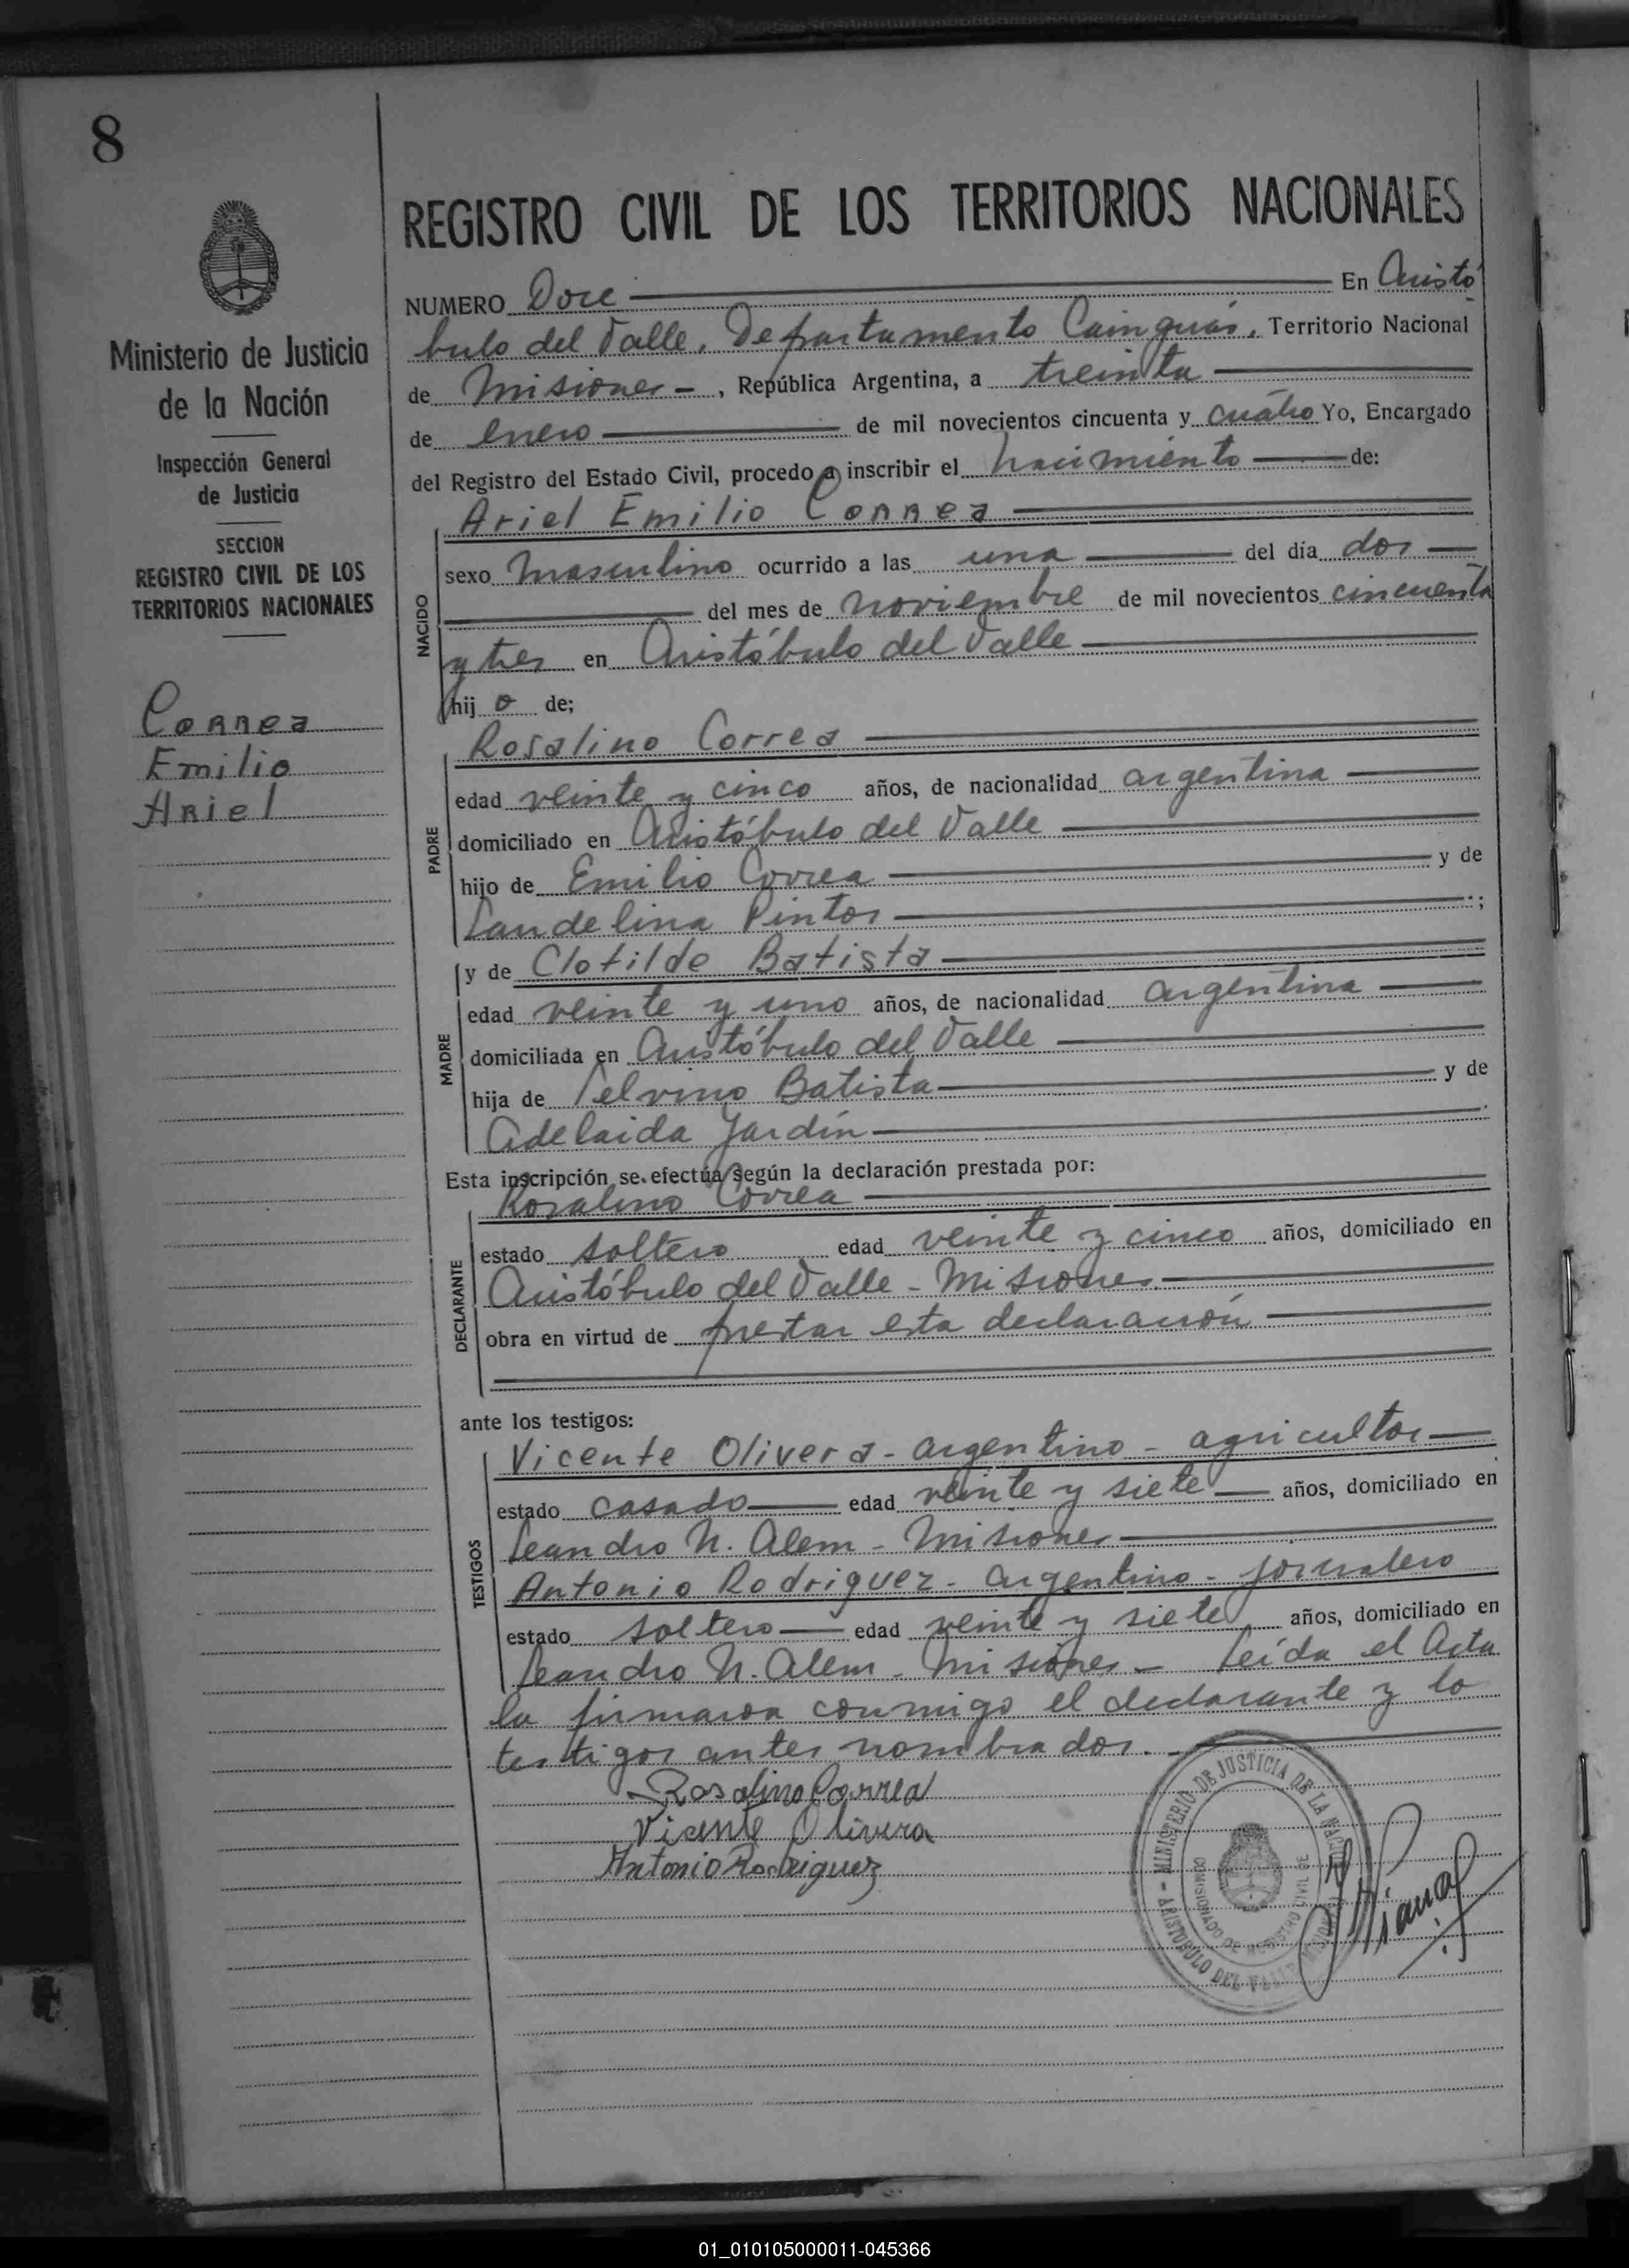 8
REGISTRO CIVIL DE LOS TERRITORIOS NACIONALES
Ministerio de Justicia
de la Nación
Inspección General
de Justicia
SECCION
REGISTRO CIVIL DE LOS
TERRITORIOS NACIONALES
Correa
Emilio
Ariel
NUMERO Doce En Aristó
bulo del Valle, Departamento Cainguás, Territorio Nacional
de Misiones -, República Argentina, a treinta
de enero de mil novecientos cincuenta y cuatro Yo, Encargado
del Registro del Estado Civil, procedo a inscribir el nacimiento de:
NACIDO
Ariel Emilio Correa
sexo masculino ocurrido a las una del día dos
del mes de noviembre de mil novecientos cincuenta
y tres en Aristóbulo del Valle
hijo de;
PADRE
Rosalino Correa
edad veinte y cinco años, de nacionalidad argentina
domiciliado en Aristóbulo del Valle
hijo de Emilio Correa y de
Landelina Pintos ;
MADRE
y de Clotilde Batista
edad veinte y uno años, de nacionalidad argentina
domiciliada en Aristóbulo del Valle
hija de Pelvino Batista y de
Adelaida Jardín
Esta inscripción se efectúa según la declaración prestada por:
DECLARANTE
Rosalino Correa
estado soltero edad veinte y cinco años, domiciliado en
Aristóbulo del Valle - Misiones.
obra en virtud de prestar esta declaración
ante los testigos:
TESTIGOS
Vicente Olivera - argentino - agricultor
estado casado edad veinte y siete años, domiciliado en
Leandro N. Alem - Misiones
Antonio Rodriguez - argentino - jornalero
estado soltero edad veinte y siete años, domiciliado en
Leandro N. Alem - Misiones - Leída el Acta
la firmaron conmigo el declarante y lo
testigos antes nombrados.
Rosalino Correa
Vicente Olivera
Antonio Rodriguez
MINISTERIO DE JUSTICIA DE LA NACION - ARISTOBULO DEL VALLE
COMISIONADO DE REGISTRO CIVIL DE
01_010105000011-045366